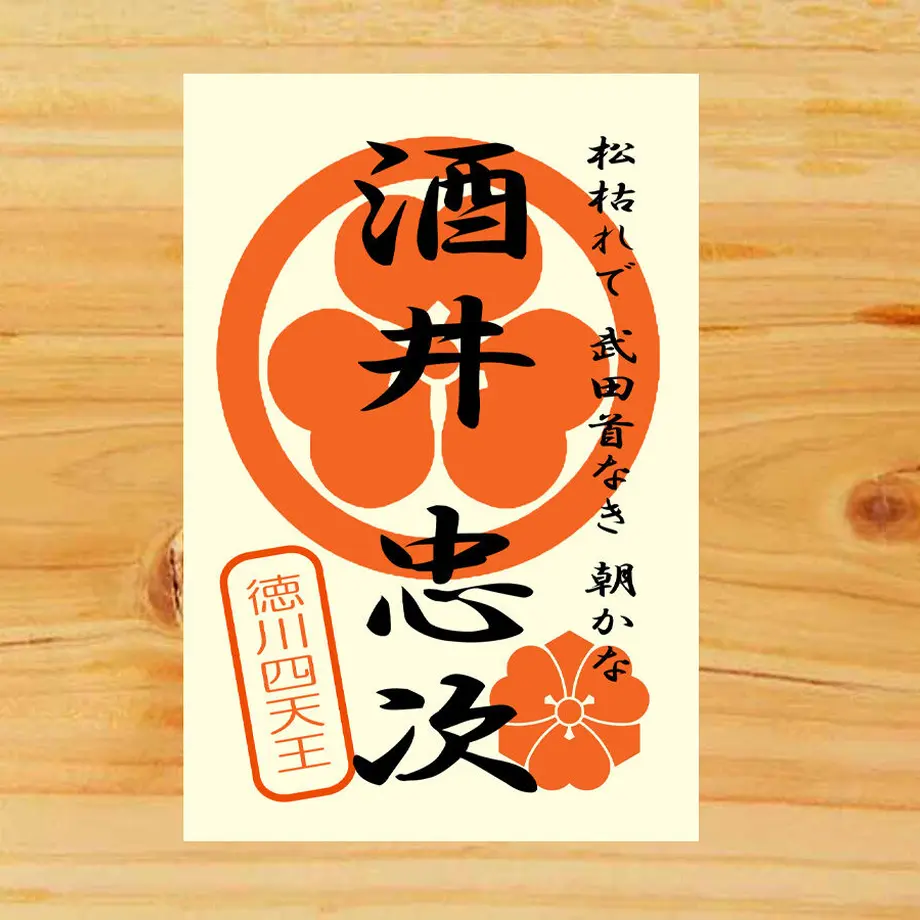 松枯れで 武田首なき 朝かな
酒井 忠次
徳川四天王